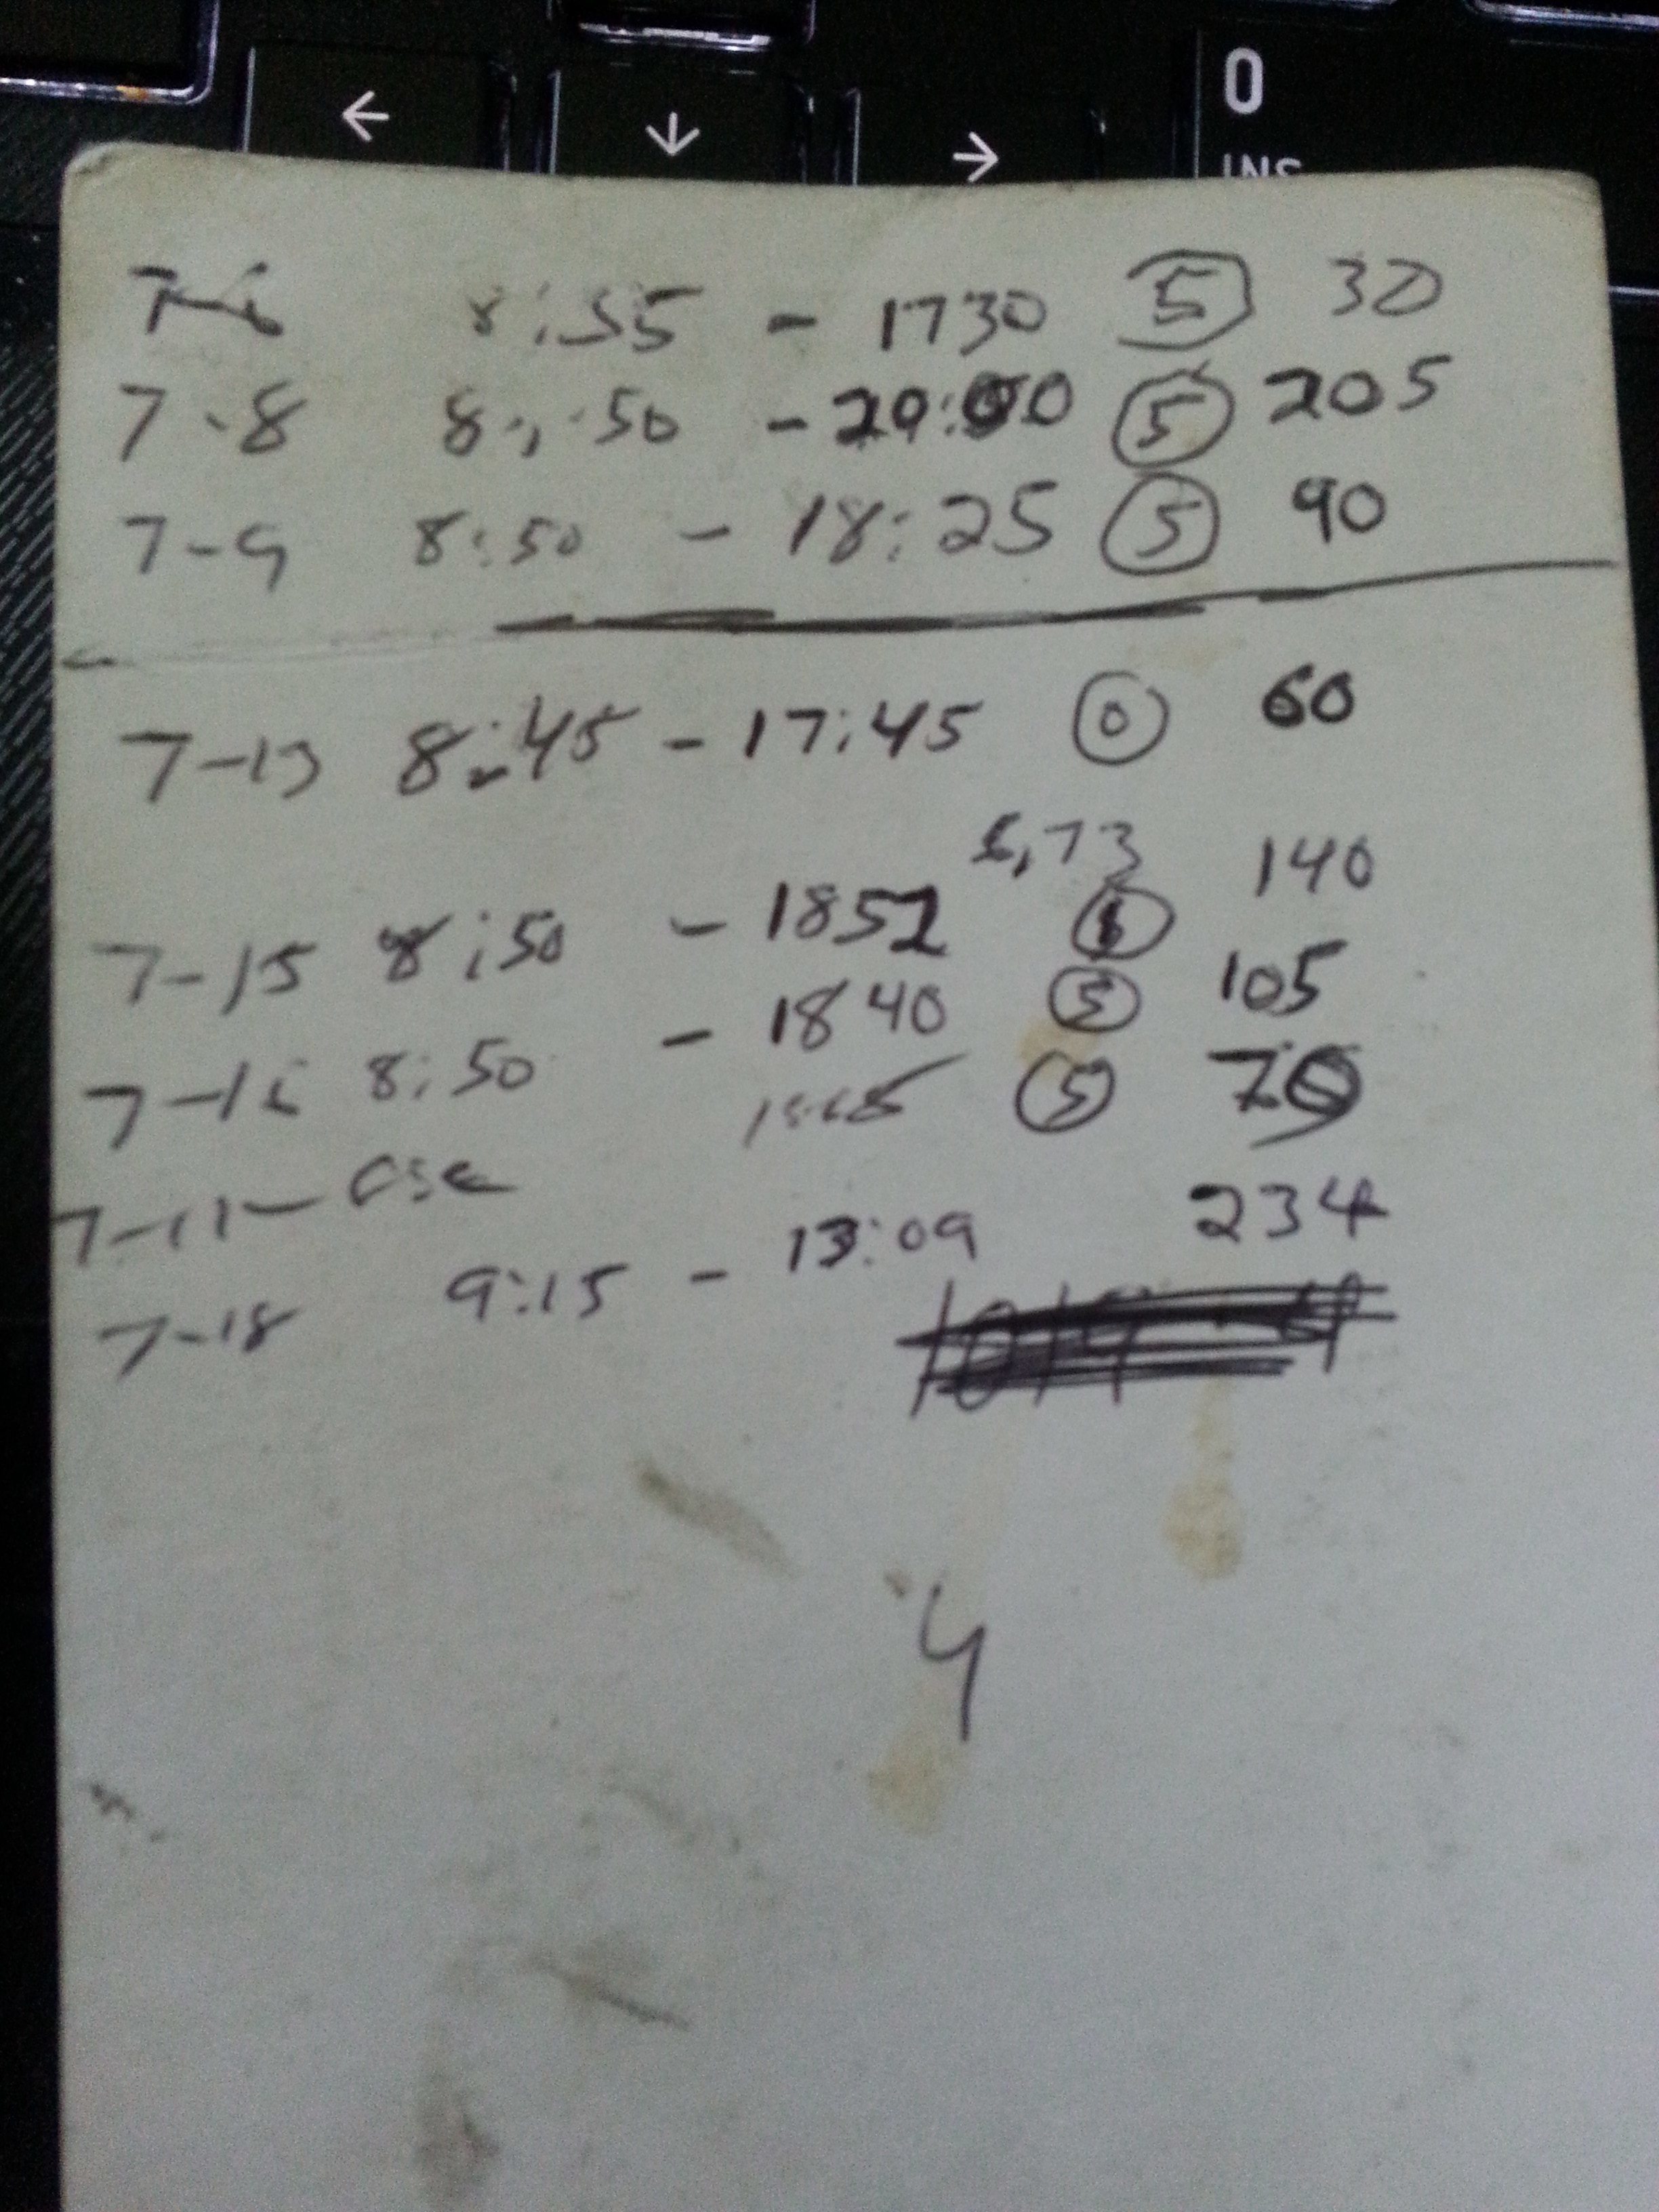 ← ↓ → 0
INS
7-6 8:55 - 1730 5 30
7-8 8:50 - 20:00 5 205
7-9 8:50 - 18:25 5 90
7-13 8:45 - 17:45 0 60
6,73 140
7-15 8:50 - 1852
7-16 8:50 - 1840 5 105
5 70
7-17-
7-18 9:15 - 13:09 234
4